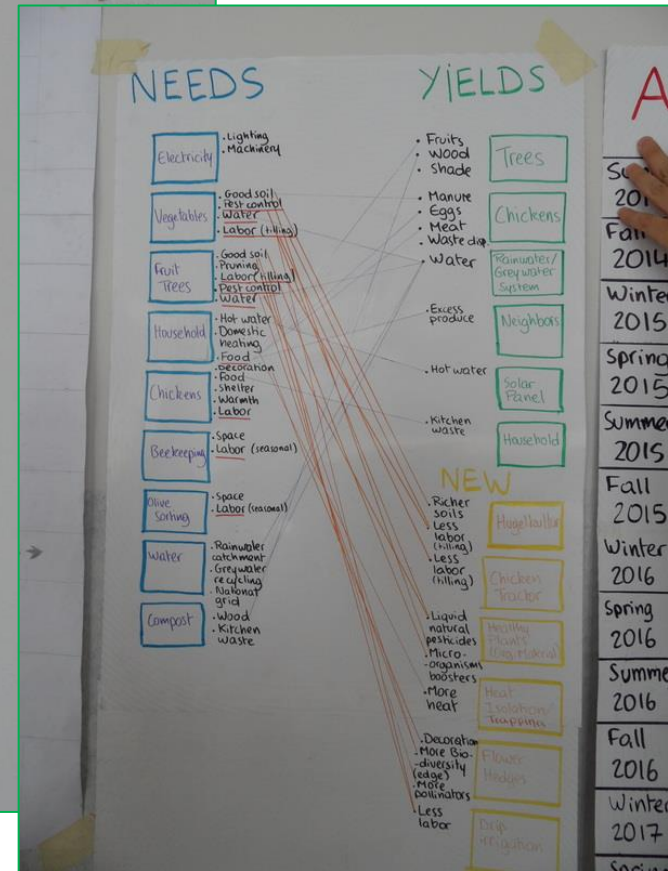 NEEDS
Electricity
. Lighting
. Machinery
Vegetables
. Good soil
. Pest control
. Water
. Labor (tilling)
Fruit
Trees
. Good soil
. Pruning
. Labor (tilling)
. Pest control
. Water
Household
. Hot water
. Domestic
heating
. Food
. Decoration
Chickens
. Food
. Shelter
. Warmth
. Labor
Beekeeping
. Space
. Labor (seasonal)
Olive
Sorting
. Space
. Labor (seasonal)
Water
. Rainwater
catchment
. Greywater
recycling
. National
grid
Compost
. Wood
. Kitchen
waste
YiELDS
. Fruits
. Wood
. Shade
Trees
. Manure
. Eggs
. Meat
. Waste disp.
Chickens
. Water
Rainwater/
Greywater
System
. Excess
produce
Neighbors
. Hot water
Solar
Panel
. Kitchen
waste
Household
NEW
. Richer
soils
. Less
labor
(tilling)
Hugelkultur
. Less
labor
(tilling)
Chicken
Tractor
. Liquid
natural
pesticides
. Micro-
-organisms
boosters
Healthy
Plants
. More
heat
Heat
Isolation/
Trapping
. Decoration
. More Bio-
-diversity
(edge)
. More
pollinators
Flower
Hedges
. Less
labor
Drip
irrigation
A
Su
201
Fall
2014
Winter
2015
Spring
2015
Summe
2015
Fall
2015
Winter
2016
Spring
2016
Summe
2016
Fall
2016
Winter
2017